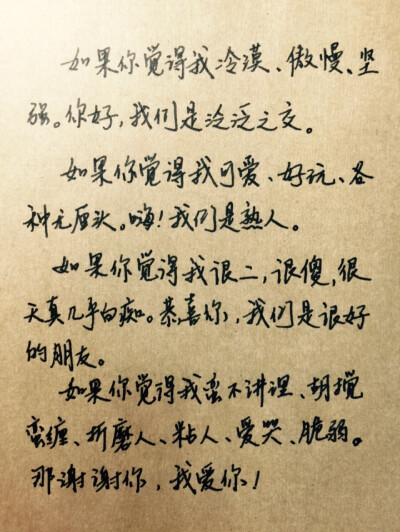 如果你觉得我冷漠、傲慢、坚
强。你好，我们是泛泛之交。
如果你觉得我可爱、好玩、各
种无厘头。嗨！我们是熟人。
如果你觉得我很二，很傻，很
天真几乎白痴。恭喜你，我们是很好
的朋友。
如果你觉得我蛮不讲理、胡搅
蛮缠、折磨人、粘人、爱哭、脆弱。
那谢谢你，我爱你！